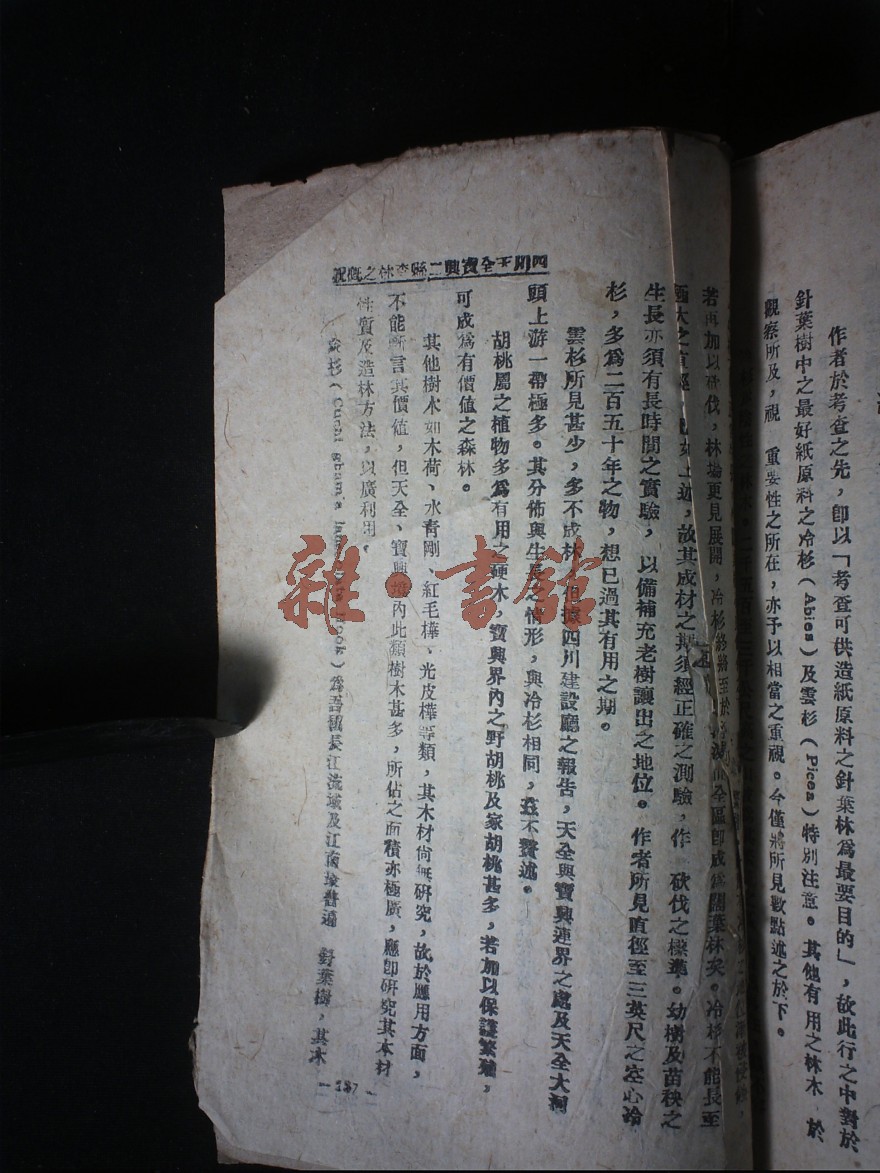 作者於考查之先，卽以「考查可供造紙原料之針葉林爲最要目的」，故此行之中對於
針葉樹中之最好紙原料之冷杉（Abies）及雲杉（Picea）特別注意。其他有用之林木 於
觀察所及，視 重要性之所在，亦予以相當之重視。今僅將所見數點述之於下。
若再加以砍伐，林場更見展開，冷杉終將至於 全區卽成爲闊葉林矣。冷杉不能長至
極大之直徑 如上述，故其成材之期須經正確之測驗，作 砍伐之標準。幼樹及苗秧之
生長亦須有長時間之實驗，以備補充老樹讓出之地位。作者所見直徑至三英尺之空心冷
杉，多爲二百五十年之物，想已過其有用之期。
雲杉所見甚少，多不成林，但據四川建設廳之報告，天全與寶興連界之處及天全大河
頭上游一帶極多。其分佈與生長之情形，與冷杉相同，茲不贅述。
胡桃屬之植物多爲有用之硬木，寶興界內之野胡桃及家胡桃甚多，若加以保護繁殖，
可成爲有價値之森林。
其他樹木如木荷、水靑剛、紅毛樺、光皮樺等類，其木材尙無研究，故於應用方面，
不能斷言其價値，但天全、寶興境內此類樹木甚多，所佔之面積亦極廣，應卽研究其木材
性質及造林方法，以廣利用。
杉 爲吾國長江流域及江南 普遍 針葉樹，其木
四川天全寶興二縣森林之槪況
雜·書館